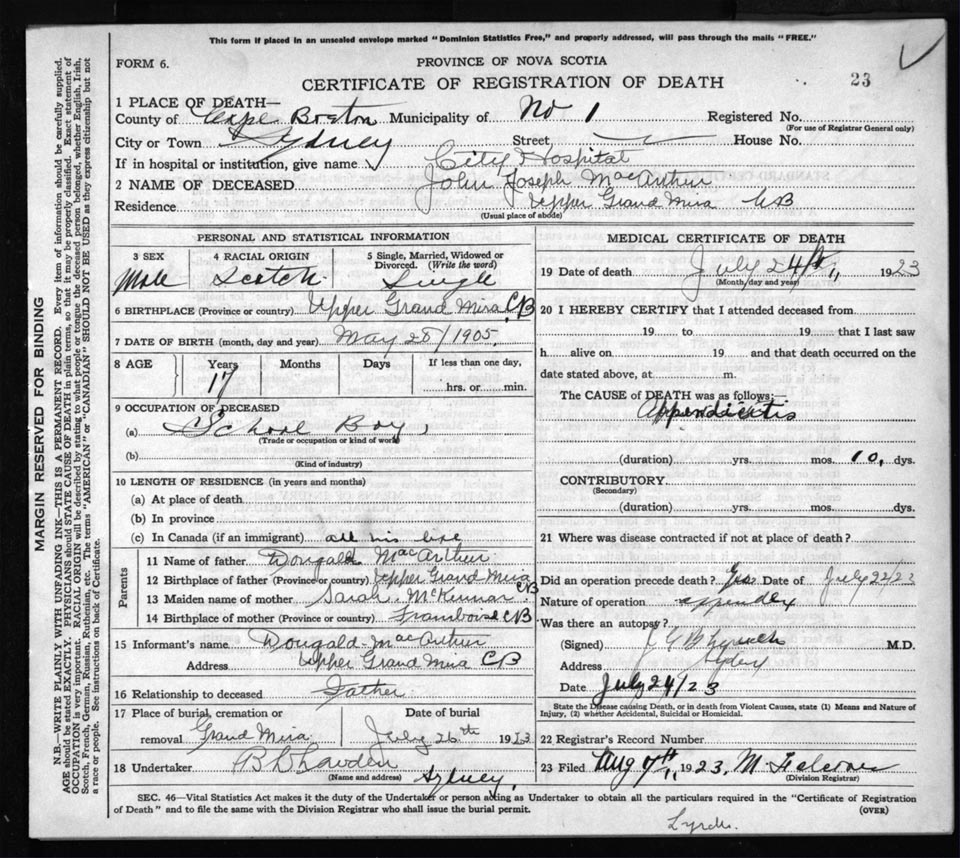 This form if placed in an unsealed envelope marked "Dominion Statistics Free," and properly addressed, will pass through the mails "FREE."
FORM 6.
PROVINCE OF NOVA SCOTIA
CERTIFICATE OF REGISTRATION OF DEATH
23
1 PLACE OF DEATH—
County of Cape Breton Municipality of No 1 Registered No.
(For use of Registrar General only)
City or Town Sydney Street House No.
If in hospital or institution, give name City Hospital
2 NAME OF DECEASED John Joseph MacArthur
Residence Upper Grand Mira CB
(Usual place of abode)
PERSONAL AND STATISTICAL INFORMATION
3 SEX 4 RACIAL ORIGIN 5 Single, Married, Widowed or Divorced. (Write the word)
Male Scotch Single
6 BIRTHPLACE (Province or country) Upper Grand Mira CB
7 DATE OF BIRTH (month, day and year) May 28/1905
8 AGE Years Months Days If less than one day,
17 hrs. or min.
9 OCCUPATION OF DECEASED
(a) School Boy
(Trade or occupation or kind of work)
(b)
(Kind of industry)
10 LENGTH OF RESIDENCE (in years and months)
(a) At place of death
(b) In province
(c) In Canada (if an immigrant) all his life
Parents
11 Name of father Dougald MacArthur
12 Birthplace of father (Province or country) Upper Grand Mira CB
13 Maiden name of mother Sarah McKinnon
14 Birthplace of mother (Province or country) Framboise CB
15 Informant's name Dougald MacArthur
Address Upper Grand Mira CB
16 Relationship to deceased Father
17 Place of burial, cremation or Date of burial
removal Grand Mira July 26th 1923
18 Undertaker
(Name and address) Sydney
MEDICAL CERTIFICATE OF DEATH
19 Date of death July 24th 1923
(Month, day and year)
20 I HEREBY CERTIFY that I attended deceased from
19 to 19 that I last saw
h alive on 19 and that death occurred on the
date stated above, at m.
The CAUSE of DEATH was as follows:
Appendicitis
(duration) yrs. mos. 10 dys.
CONTRIBUTORY
(Secondary)
(duration) yrs. mos. dys.
21 Where was disease contracted if not at place of death?
Did an operation precede death? Yes Date of July 22/23
Nature of operation appendix
Was there an autopsy?
(Signed) M.D.
Address Sydney
Date July 24/23
State the Disease causing Death, or in death from Violent Causes, state (1) Means and Nature of Injury, (2) whether Accidental, Suicidal or Homicidal.
22 Registrar's Record Number
23 Filed Aug 7th 1923
(Division Registrar)
SEC. 46—Vital Statistics Act makes it the duty of the Undertaker or person acting as Undertaker to obtain all the particulars required in the "Certificate of Registration
of Death" and to file the same with the Division Registrar who shall issue the burial permit.
(OVER)
MARGIN RESERVED FOR BINDING
N.B.—WRITE PLAINLY WITH UNFADING INK—THIS IS A PERMANENT RECORD. Every item of information should be carefully supplied.
AGE should be stated EXACTLY. PHYSICIANS should STATE CAUSE OF DEATH in plain terms, so that it may be properly classified. Exact statement of
OCCUPATION is very important. RACIAL ORIGIN will be described by stating to what people or tongue the deceased person belonged, whether English, Irish,
Scotch, French, German, Russian, Ruthenian, etc. The terms "AMERICAN" or "CANADIAN" SHOULD NOT BE USED as they express citizenship but not
a race or people. See instructions on back of Certificate.